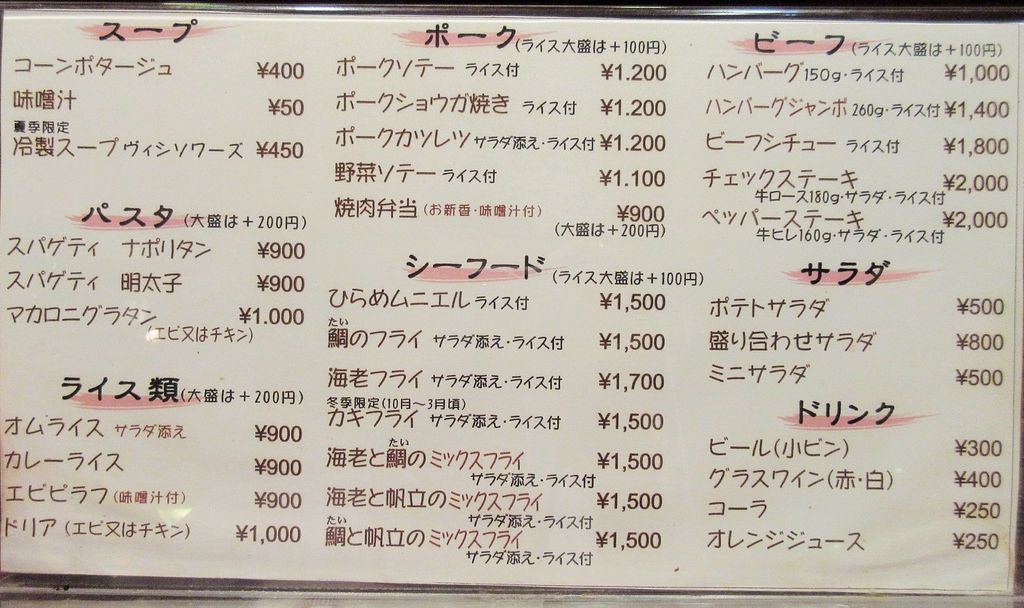 スープ
コーンポタージュ ¥400
味噌汁 ¥50
夏季限定
冷製スープ ヴィシソワーズ ¥450
パスタ(大盛は+200円)
スパゲティ ナポリタン ¥900
スパゲティ 明太子 ¥900
マカロニグラタン ¥1.000
(エビ又はチキン)
ライス類(大盛は+200円)
オムライス サラダ添え ¥900
カレーライス ¥900
エビピラフ(味噌汁付) ¥900
ドリア(エビ又はチキン) ¥1,000
ポーク(ライス大盛は+100円)
ポークソテー ライス付 ¥1.200
ポークショウガ焼き ライス付 ¥1.200
ポークカツレツ サラダ添え・ライス付 ¥1.200
野菜ソテー ライス付 ¥1.100
焼肉弁当(お新香・味噌汁付) ¥900
(大盛は+200円)
シーフード(ライス大盛は+100円)
ひらめムニエル ライス付 ¥1,500
たい
鯛のフライ サラダ添え・ライス付 ¥1,500
海老フライ サラダ添え・ライス付 ¥1,700
冬季限定(10月〜3月頃)
カキフライ サラダ添え・ライス付 ¥1,500
たい
海老と鯛のミックスフライ ¥1,500
サラダ添え・ライス付
海老と帆立のミックスフライ ¥1,500
サラダ添え・ライス付
たい
鯛と帆立のミックスフライ ¥1,500
サラダ添え・ライス付
ビーフ(ライス大盛は+100円)
ハンバーグ150g・ライス付 ¥1,000
ハンバーグジャンボ 260g・ライス付 ¥1,400
ビーフシチュー ライス付 ¥1,800
チェックステーキ ¥2,000
牛ロース180g・サラダ・ライス付
ペッパーステーキ ¥2,000
牛ヒレ160g・サラダ・ライス付
サラダ
ポテトサラダ ¥500
盛り合わせサラダ ¥800
ミニサラダ ¥500
ドリンク
ビール(小ビン) ¥300
グラスワイン(赤・白) ¥400
コーラ ¥250
オレンジジュース ¥250